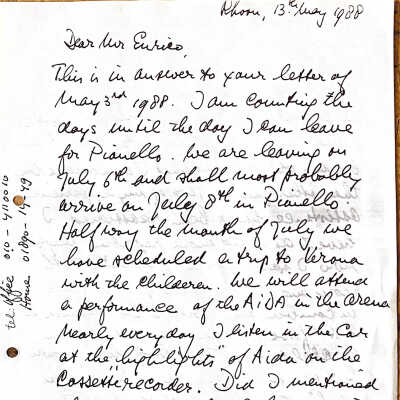 Rhoon, 13th May 1988
Dear Mr Enrico,
This is in answer to your letter of
May 3rd 1988. I am counting the
days until the day I can leave
for Pianello. We are leaving on
July 6th and shall most probably
arrive on July 8th in Pianello.
Half way the month of July we
have scheduled a trip to Verona
with the childeren. We will attend
a performance of the AIDA in the arena
Nearly every day I listen in the Car
at the "highlights" of Aida on the
Cossette recorder. Did I mentioned
tel. office 010 - 4110010
Home 01890 - 19449